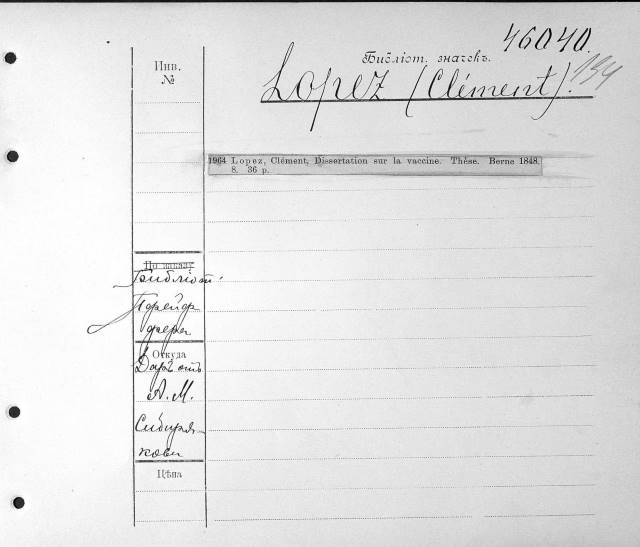 46040.
Библiот. значекъ.
Инв.
№
Lopez (Clément).
134
1964 Lopez, Clément, Dissertation sur la vaccine. Thèse. Berne 1848.
8. 36 p.
По заказу
Библiот.
Прейф
фера
Откуда
Даръ отъ
А. М.
Сибиря-
кова
Цѣна